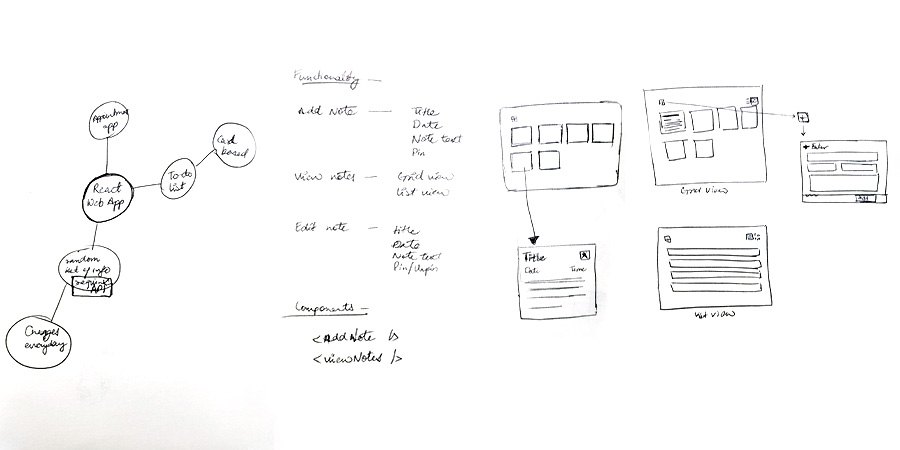 Appointment
app
Card
based
To do
list
React
Web App
random
set of info
API
Changes
everyday
Functionality —
Add Note — Title
Date
Note text
Pin
View notes — Grid view
List view
Edit note — Title
Date
Note text
Pin/Unpin
Components —
<AddNote />
<viewNotes />
Title
Date Time
Grid view
+
List view